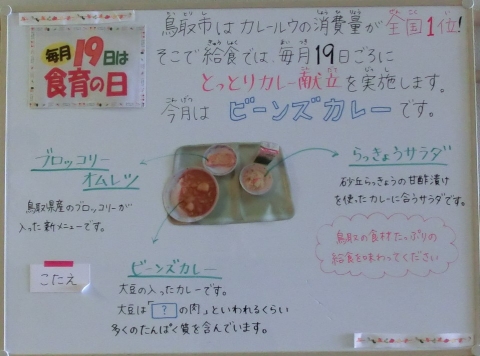 毎月19日は
食育の日
鳥取市はカレールウの消費量が全国1位!
そこで給食では、毎月19日ごろに
とっとりカレー献立を実施します。
今月は ビーンズカレーです。
ブロッコリー
オムレツ
鳥取県産のブロッコリーが
入った新メニューです。
らっきょうサラダ
砂丘らっきょうの甘酢漬け
を使ったカレーに合うサラダです。
鳥取の食材たっぷりの
給食を味わってください
こたえ
ビーンズカレー
大豆の入ったカレーです。
大豆は「?の肉」といわれるくらい
多くのたんぱく質を含んでいます。